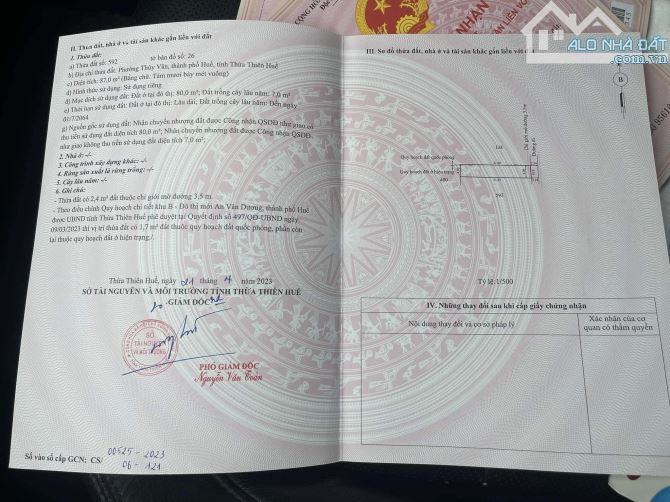 II. Thửa đất, nhà ở và tài sản khác gắn liền với đất
1. Thửa đất:
a) Thửa đất số: 592 tờ bản đồ số: 26
b) Địa chỉ thửa đất: Phường Thủy Vân, thành phố Huế, tỉnh Thừa Thiên Huế
c) Diện tích: 87,0 m² (Bằng chữ: Tám mươi bảy mét vuông)
d) Hình thức sử dụng: Sử dụng riêng
đ) Mục đích sử dụng đất: Đất ở tại đô thị: 80,0 m²; Đất trồng cây lâu năm: 7,0 m²
e) Thời hạn sử dụng đất: Đất ở tại đô thị: Lâu dài; Đất trồng cây lâu năm: Đến ngày
01/7/2064
g) Nguồn gốc sử dụng đất: Nhận chuyển nhượng đất được Công nhận QSDĐ như giao có
thu tiền sử dụng đất diện tích 80,0 m²; Nhận chuyển nhượng đất được Công nhận QSDĐ
như giao không thu tiền sử dụng đất diện tích 7,0 m².
2. Nhà ở: -/-
3. Công trình xây dựng khác: -/-
4. Rừng sản xuất là rừng trồng: -/-
5. Cây lâu năm: -/-
6. Ghi chú:
- Thửa đất có 2,4 m² đất thuộc chỉ giới mở đường 3,5 m.
- Theo điều chỉnh Quy hoạch chi tiết khu B - Đô thị mới An Vân Dương, thành phố Huế
được UBND tỉnh Thừa Thiên Huế phê duyệt tại Quyết định số 497/QĐ-UBND ngày
09/03/2023 thì vị trí thửa đất có 1,7 m² đất thuộc quy hoạch đất quốc phòng, phần còn
lại thuộc quy hoạch đất ở hiện trạng./.
Thừa Thiên Huế, ngày 21 tháng 4 năm 2023
SỞ TÀI NGUYÊN VÀ MÔI TRƯỜNG TỈNH THỪA THIÊN HUẾ
GIÁM ĐỐC
SỞ
TÀI NGUYÊN
VÀ MÔI TRƯỜNG
PHÓ GIÁM ĐỐC
Nguyễn Văn Toàn
Số vào sổ cấp GCN: CS/ 00525 - 2023
06 - 121
ALO NHÀ ĐẤT
III. Sơ đồ thửa đất, nhà ở và tài sản khác gắn liền với đất
B
Quy hoạch đất quốc phòng
Quy hoạch đất ở hiện trạng
Tỷ lệ 1/500
IV. Những thay đổi sau khi cấp giấy chứng nhận
Nội dung thay đổi và cơ sở pháp lý
Xác nhận của cơ
quan có thẩm quyền